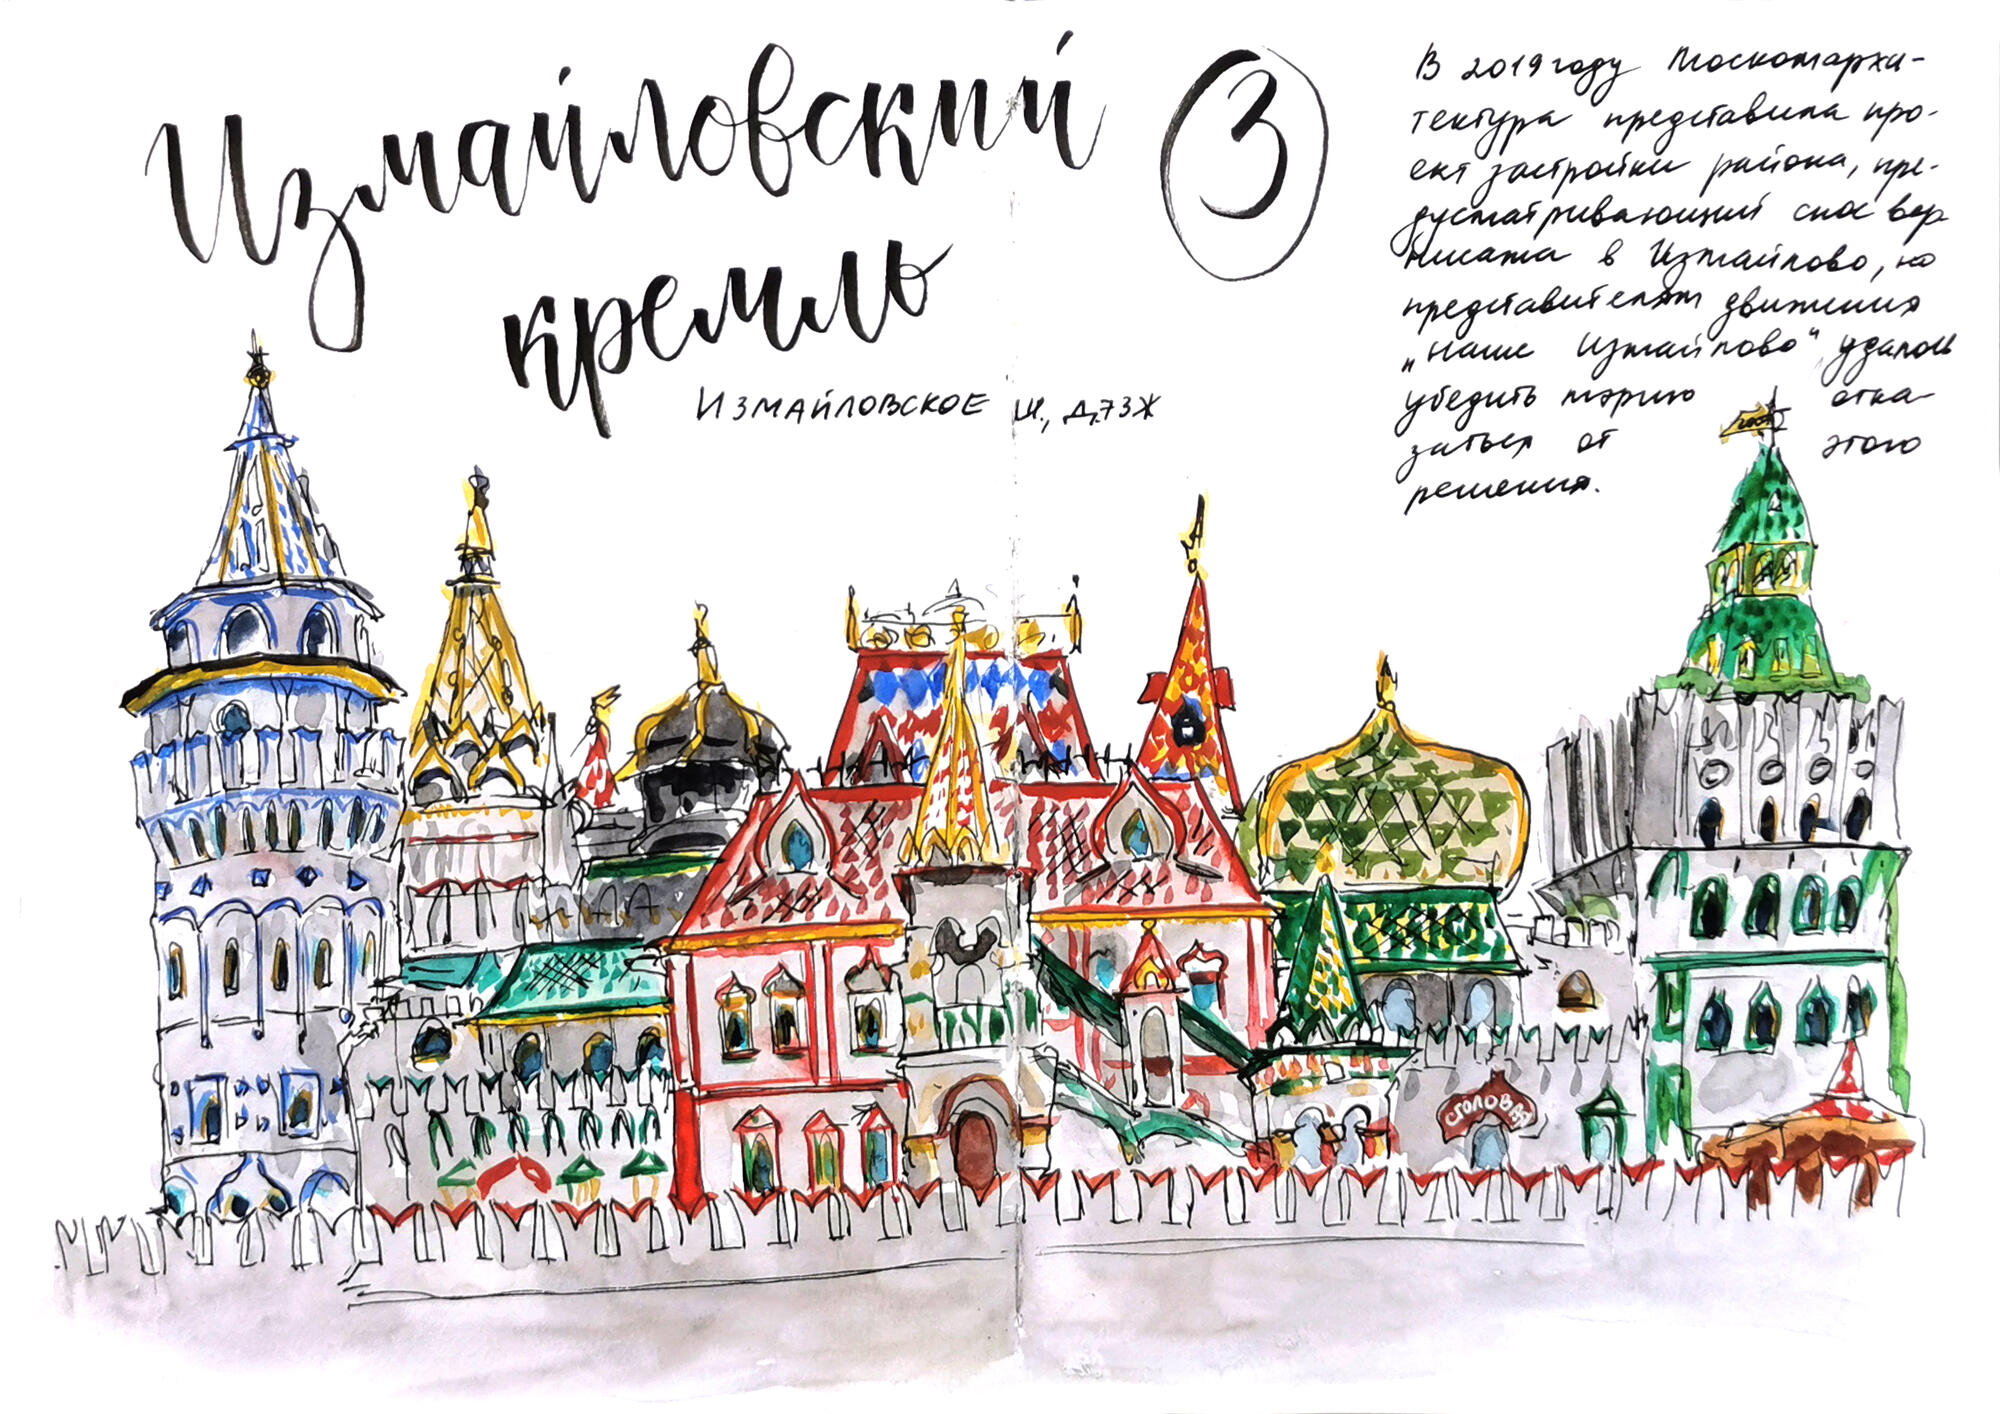 Измайловский
кремль
ИЗМАЙЛОВСКОЕ Ш., Д.73Ж
3
В 2019 году Москомархи-
тектура представила про-
ект застройки района, пре-
дусматривающий снос вер
нисажа в Измайлово, но
представителям движения
„Наше Измайлово“ удалось
убедить мэрию отка-
заться от этого
решения.
СТОЛОВАЯ